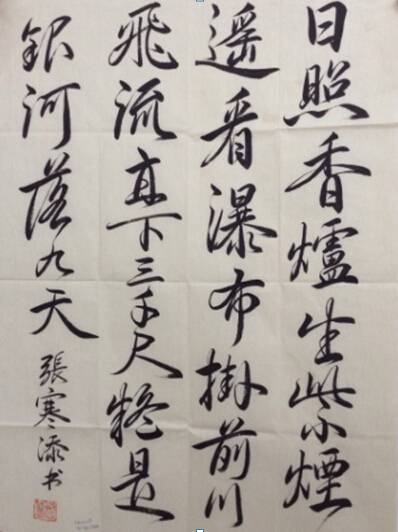 日照香爐生紫煙
遥看瀑布掛前川
飛流直下三千尺疑是
銀河落九天
張寒添书